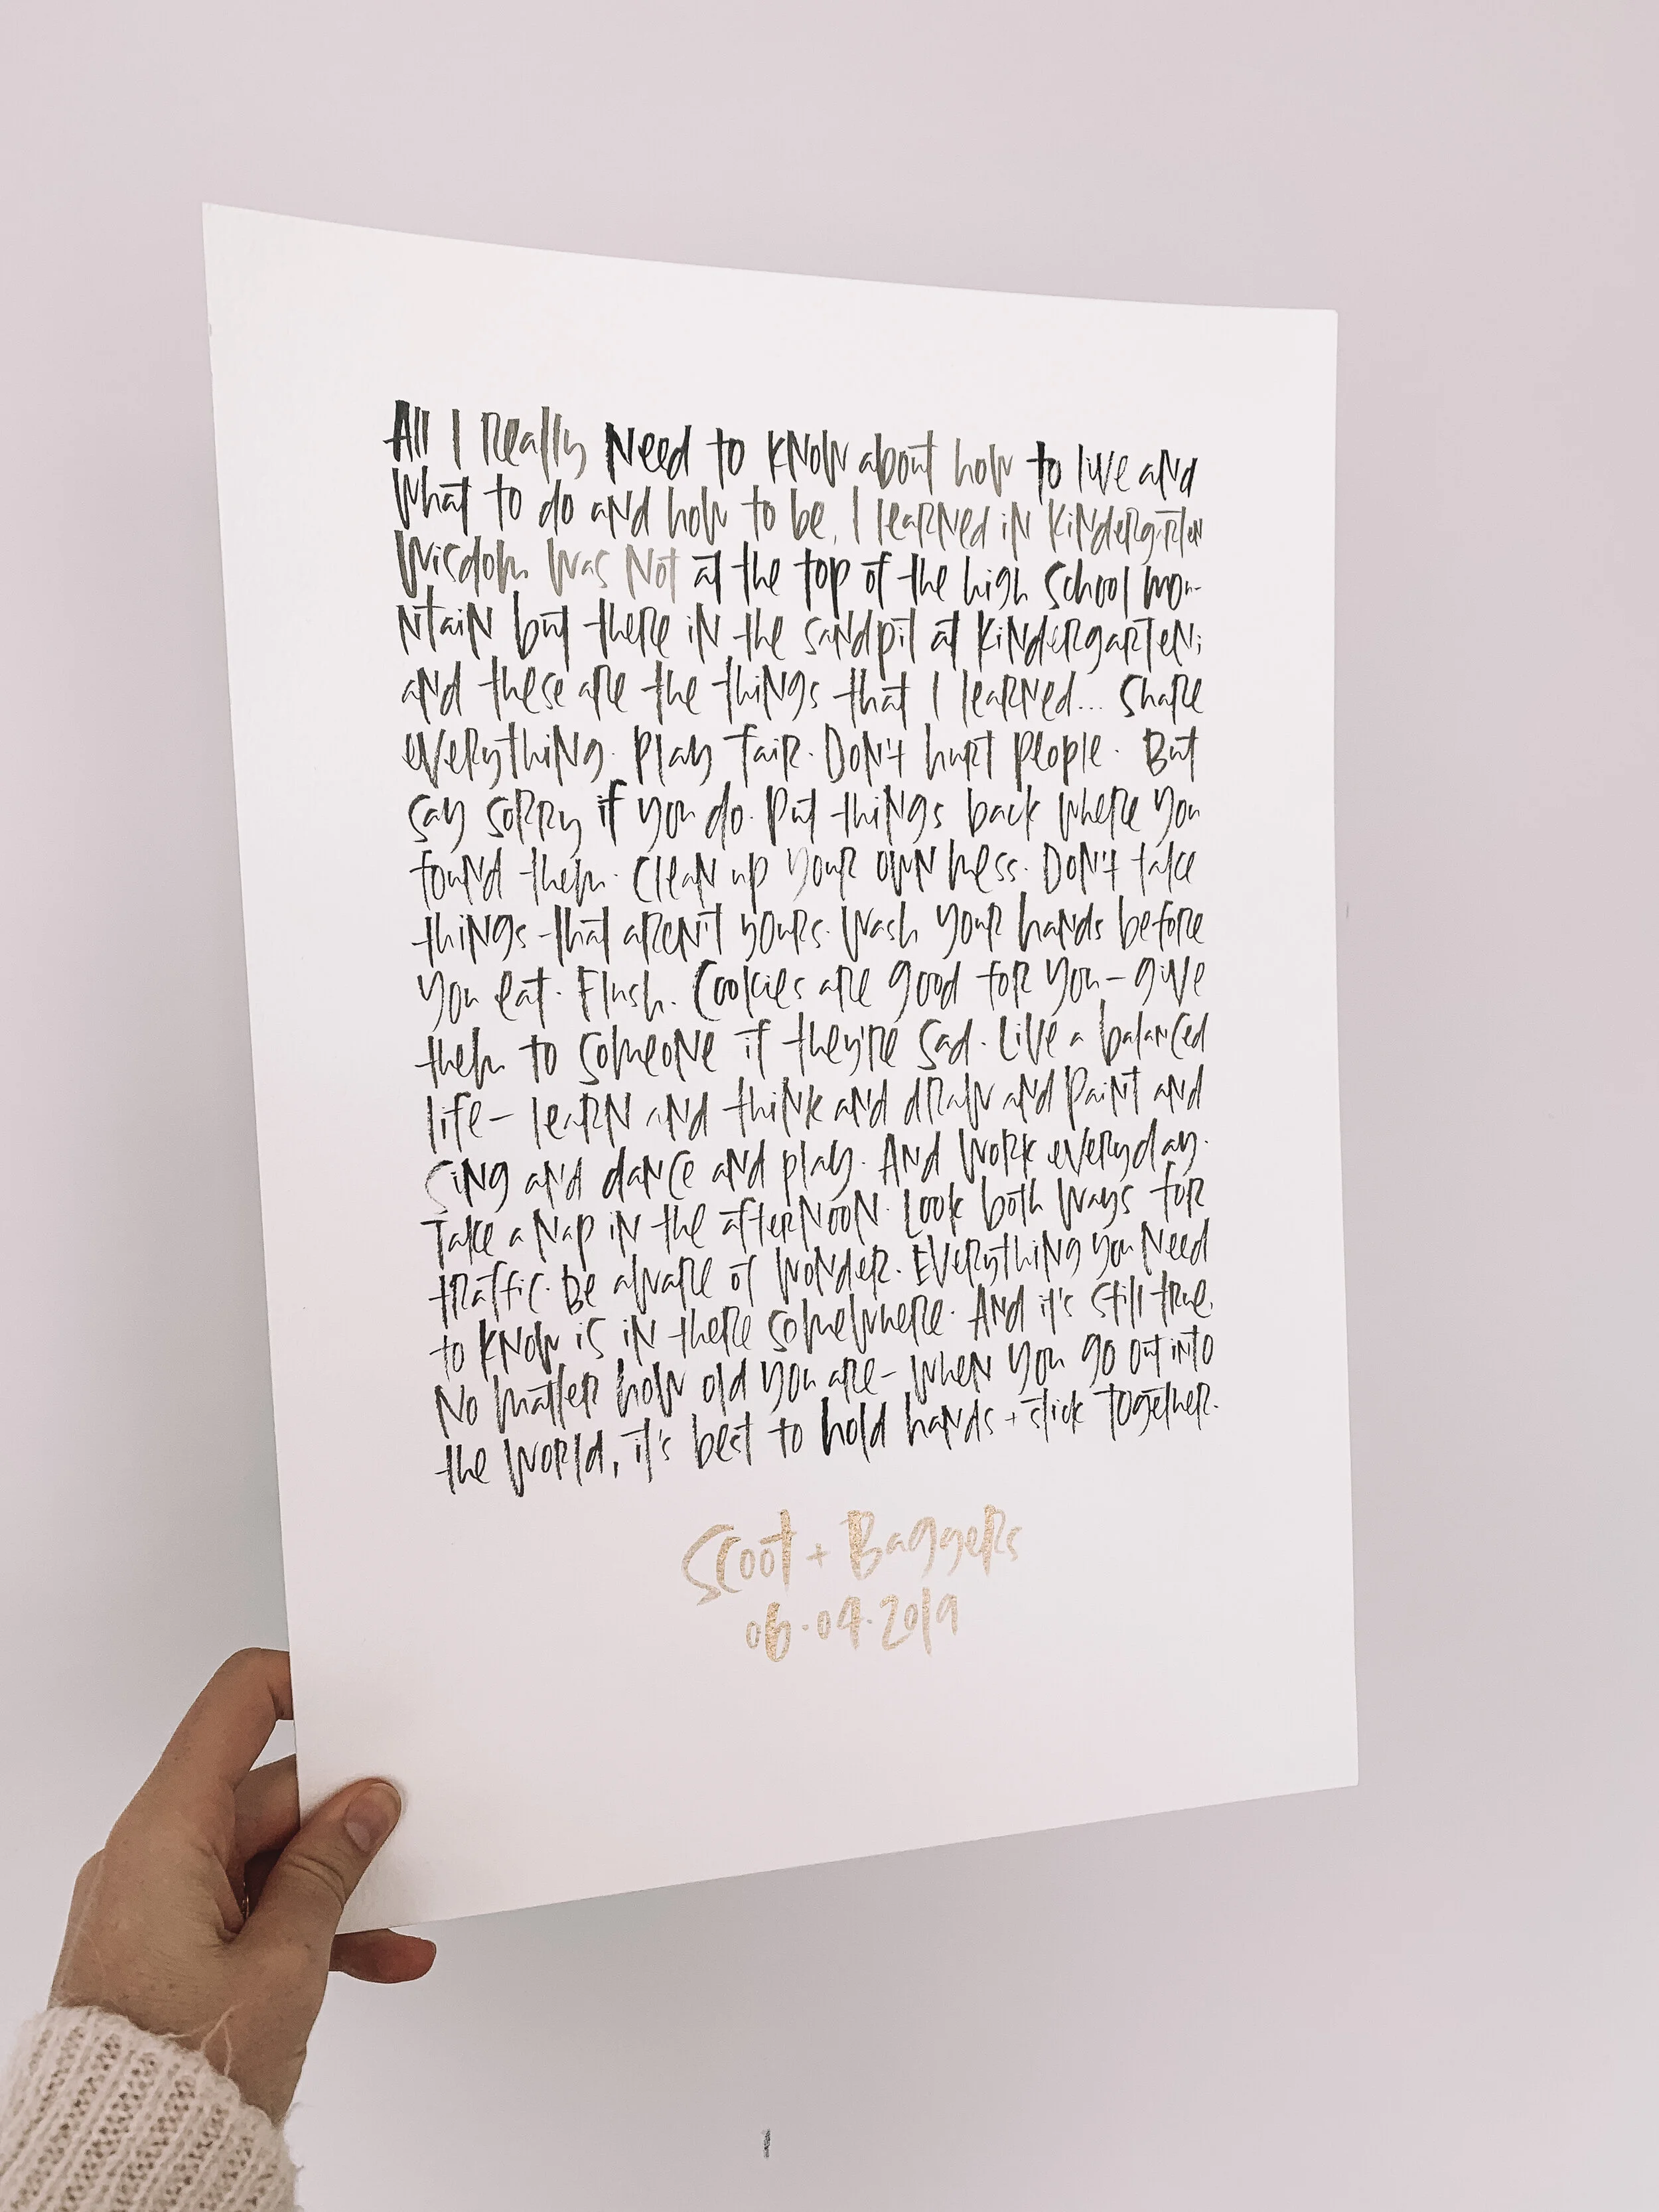 All I Really Need to know about how to live and
what to do and how to be, I learned in kindergarten
Wisdom was not at the top of the high school mou-
ntain but there in the sandpit at kindergarten;
and these are the things that I learned... Share
everything. Play fair. Don't hurt people. But
say sorry if you do. Put things back where you
found them. Clean up your own mess. Don't take
things that aren't yours. Wash your hands before
you eat. Flush. Cookies are good for you - give
them to someone if they're sad. Live a balanced
life - learn and think and draw and paint and
sing and dance and play. And work everyday.
Take a nap in the afternoon. Look both ways for
traffic. Be aware of wonder. Everything you need
to know is in there somewhere. And it's still true,
No matter how old you are - when you go out into
the world, it's best to hold hands + stick together.
Scoot + Baggers
06.04.2019